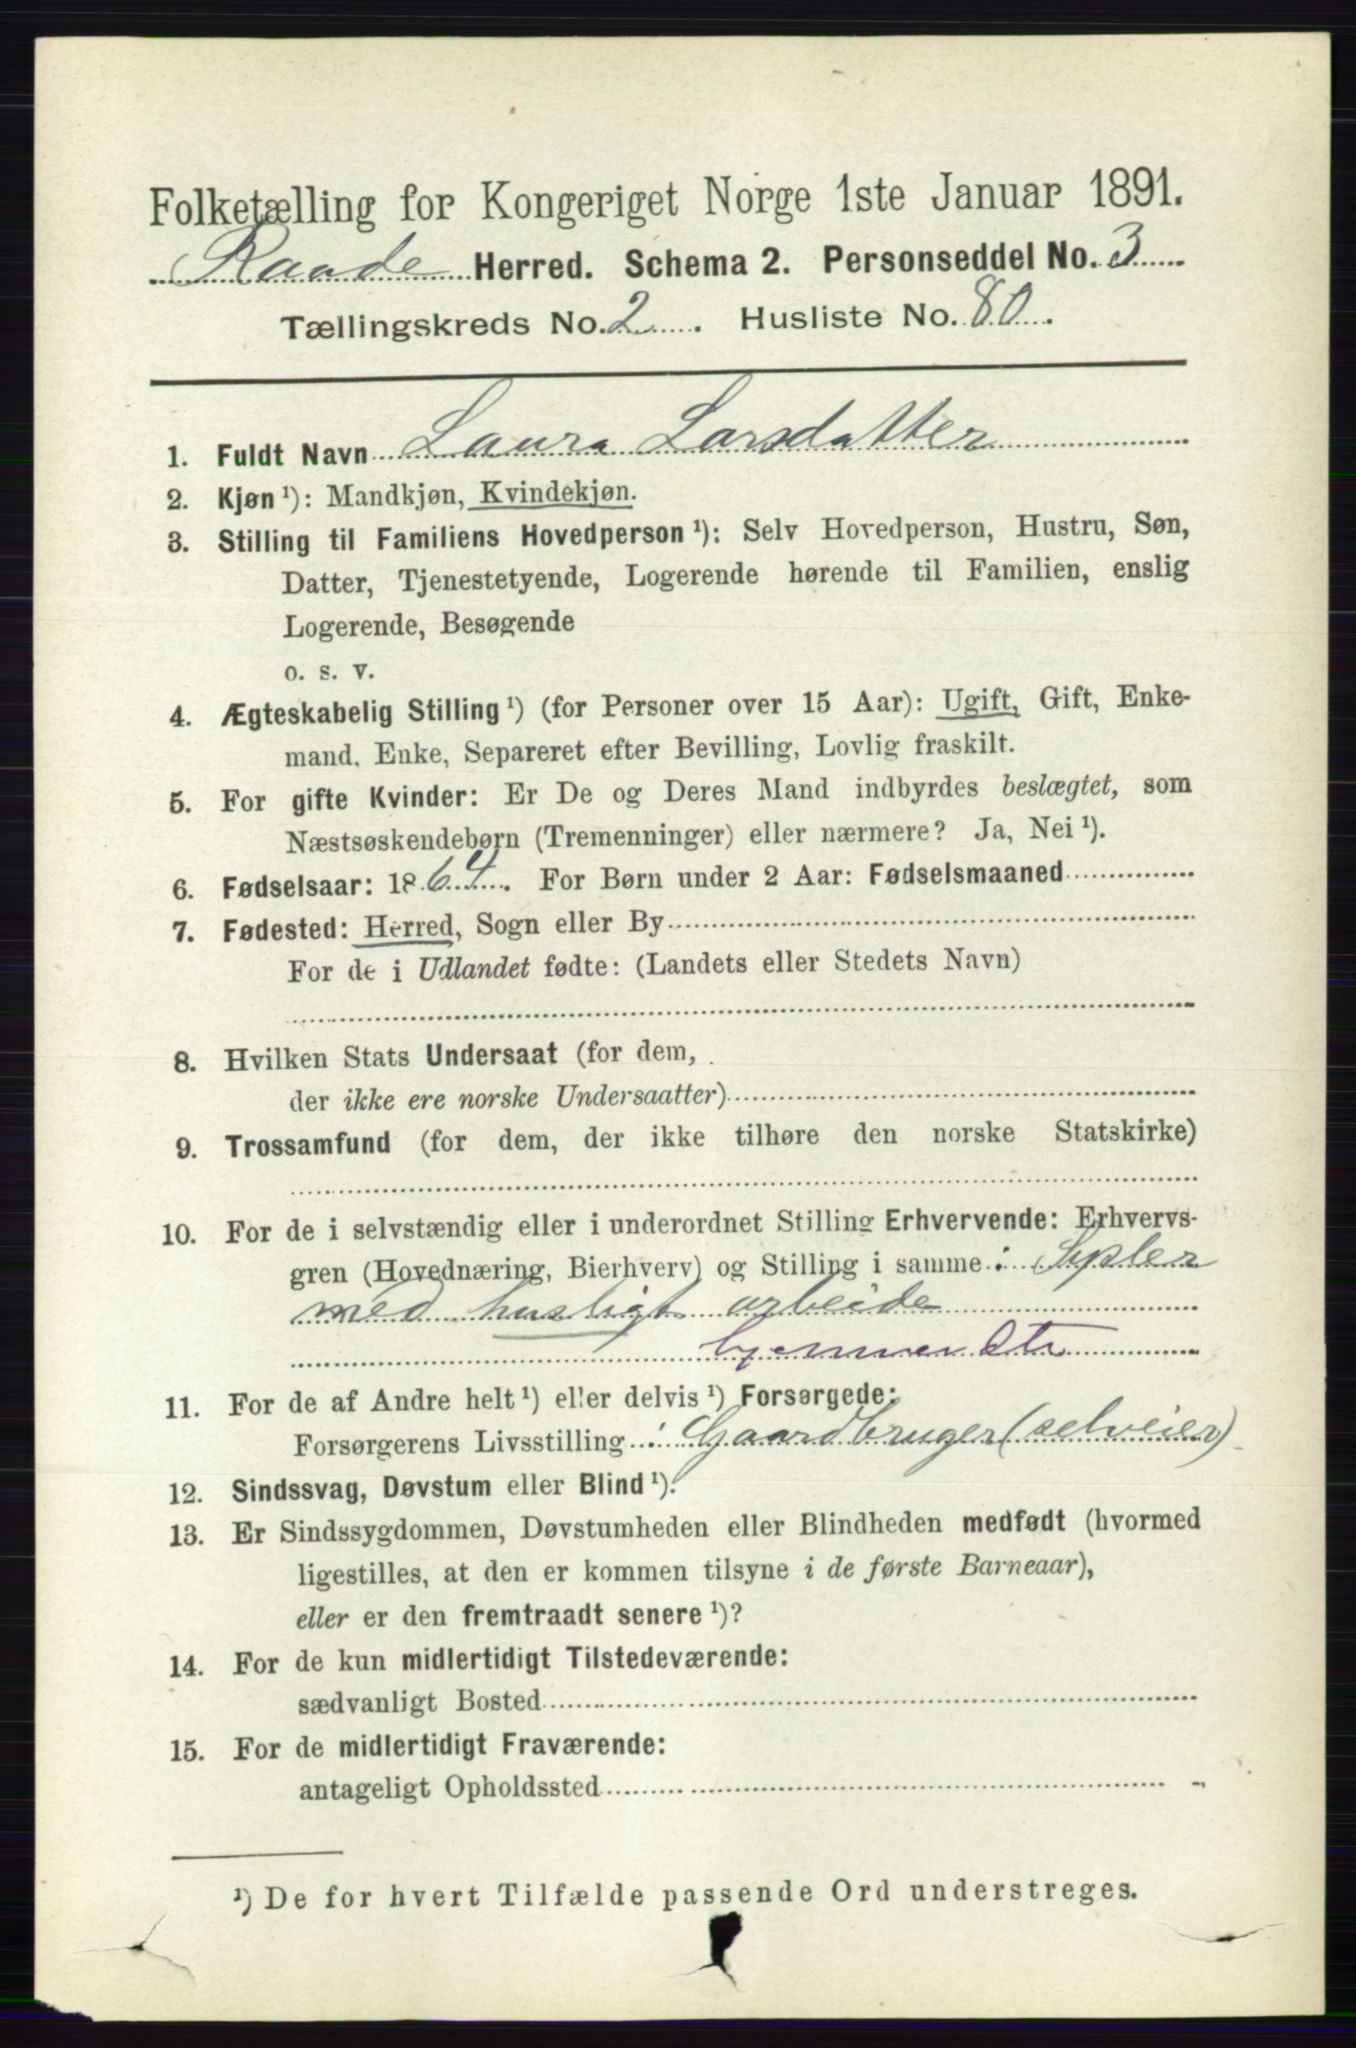 Folketælling for Kongeriget Norge 1ste Januar 1891.
Raade Herred. Schema 2. Personseddel No. 3
Tællingskreds No. 2. Husliste No. 80.
1. Fuldt Navn Laura Larsdatter
2. Kjøn ¹): Mandkjøn, Kvindekjøn.
3. Stilling til Familiens Hovedperson ¹): Selv Hovedperson, Hustru, Søn,
Datter, Tjenestetyende, Logerende hørende til Familien, enslig
Logerende, Besøgende
o. s. v.
4. Ægteskabelig Stilling ¹) (for Personer over 15 Aar): Ugift, Gift, Enke-
mand, Enke, Separeret efter Bevilling, Lovlig fraskilt.
5. For gifte Kvinder: Er De og Deres Mand indbyrdes beslægtet, som
Næstsøskendebørn (Tremenninger) eller nærmere? Ja, Nei ¹).
6. Fødselsaar: 1864. For Børn under 2 Aar: Fødselsmaaned
7. Fødested: Herred, Sogn eller By
For de i Udlandet fødte: (Landets eller Stedets Navn)
8. Hvilken Stats Undersaat (for dem,
der ikke ere norske Undersaatter)
9. Trossamfund (for dem, der ikke tilhøre den norske Statskirke)
10. For de i selvstændig eller i underordnet Stilling Erhvervende: Erhvervs-
gren (Hovednæring, Bierhverv) og Stilling i samme: Sysler
med husligt arbeide
hjemmev Dtr
11. For de af Andre helt ¹) eller delvis ¹) Forsørgede:
Forsørgerens Livsstilling: Gaardbruger (selveier)
12. Sindssvag, Døvstum eller Blind ¹).
13. Er Sindssygdommen, Døvstumheden eller Blindheden medfødt (hvormed
ligestilles, at den er kommen tilsyne i de første Barneaar),
eller er den fremtraadt senere ¹)?
14. For de kun midlertidigt Tilstedeværende:
sædvanligt Bosted
15. For de midlertidigt Fraværende:
antageligt Opholdssted
¹) De for hvert Tilfælde passende Ord understreges.